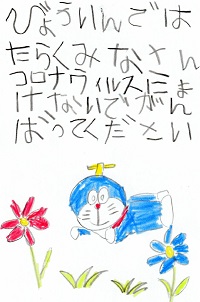 びょういんでは
たらくみなさん
コロナウィルスにま
けないでがん
ばってください